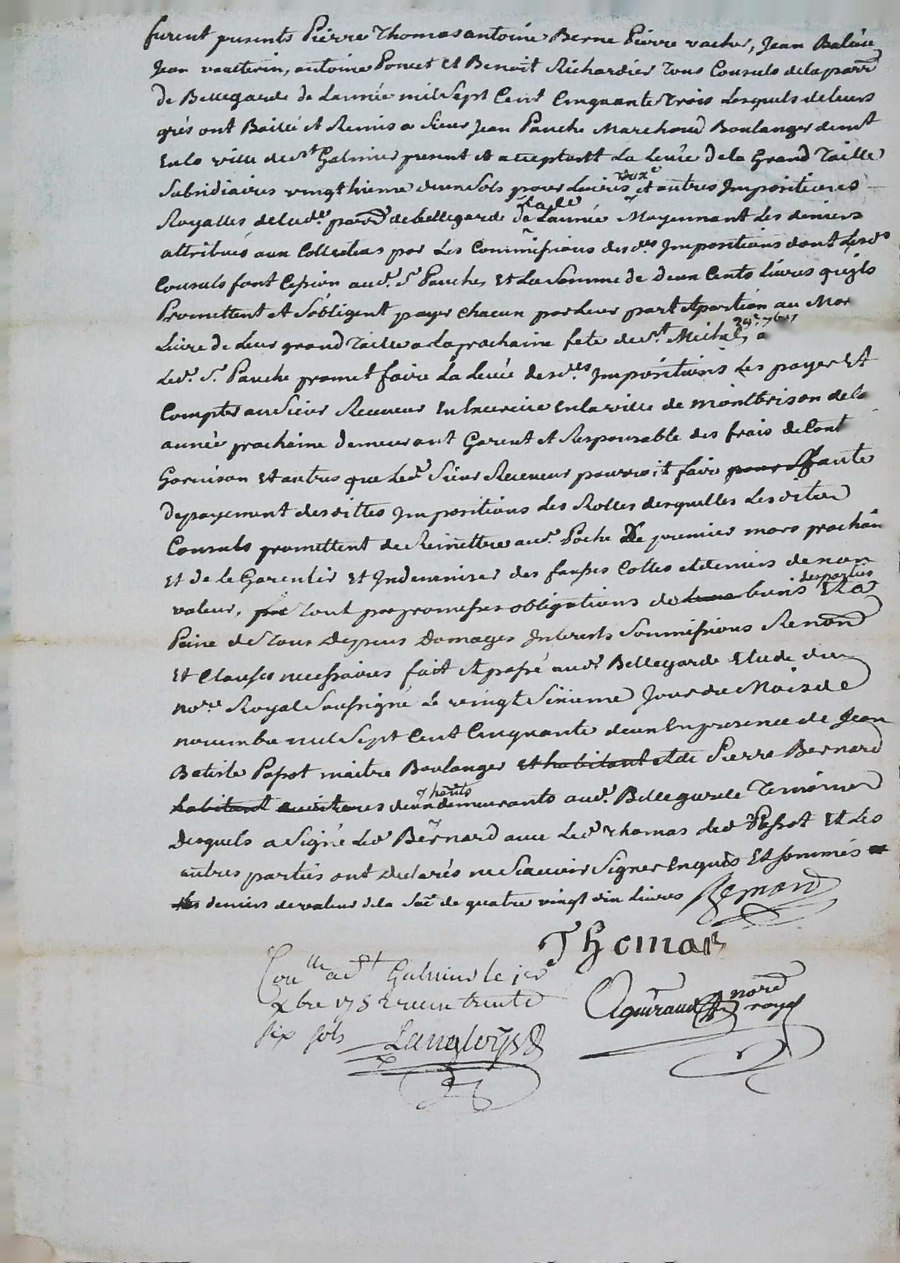 furent presents Pierre Thomas antoine Berne Pierre vacher, Jean
Jean vaulterin, antoine Poncet et Benoit Richardier Tous Consuls de la parr
De Bellegarde de Lannée mil Sept Cent Cinquante Trois Lesquels de leurs
grés ont Baillé et Remis a Sieur Jean Panche Marchand Boulanger demt
En la ville de St Galmier present et acceptant La Levée De la Grand Taille
Subsidiaires vingthieme deux Sols pour Livres et autres Impositions
Royalles de lade parr de bellegarde de Lannée Moyennant Les deniers
attribués aux Collecteurs par Les Commissions desdes Impositions dont Lesds
Consuls font Cession aud. Sr Panche Et La Somme de deux Cents Livres quils
Promettent et Sobligent payer Chacun par leur part et portion au Mar
Livre de Leur grand Taille a La prochaine fete de St Michel 29e 7bre a
Led. Sr Panche promet faire La Levée desdes Impositions Les payer Et
Compter au Sieur Receveur En Exercice En la ville de montbrison de la
année prochaine demeurant Garent et Responsable des frais de Cont
Garnison Et autres que Led. Sieur Receveur pourroit faire pour faute
de payement desdittes Impositions des Rolles desquelles Lesdits
Consuls promettent de Remettre aud. Poche Le premier mars prochain
Et de le Garentir Et Indemniser des fausses Cottes et deniers de non
valeur, tout par promesses obligations de biens desparties Et a
Peine de Tous Depens Domages Interests Soumissions Renon
Et Clauses necessaires fait et passé aud. Bellegarde Etude du
nore Royal Soussigné Le vingt Sixieme Jour du Mois de
novembre mil Sept Cent Cinquante deux En presence de Jean
Batiste Papot maitre Boulanger et habitant et de Pierre Bernard
habitant demeurants aud. Bellegarde Temoins
Desquels a Signé Led Bernard avec Led Thomas Led Papot Et Les
autres parties ont Declarés ne Scavoir Signer Enquis Et Sommés
deniers de valeur de la So de quatre vingt dix Livres Bernard
Thomas
Conlle a St Galmier le 1er
Xbre 1752 receu trente
six sols Langloys
nore royal